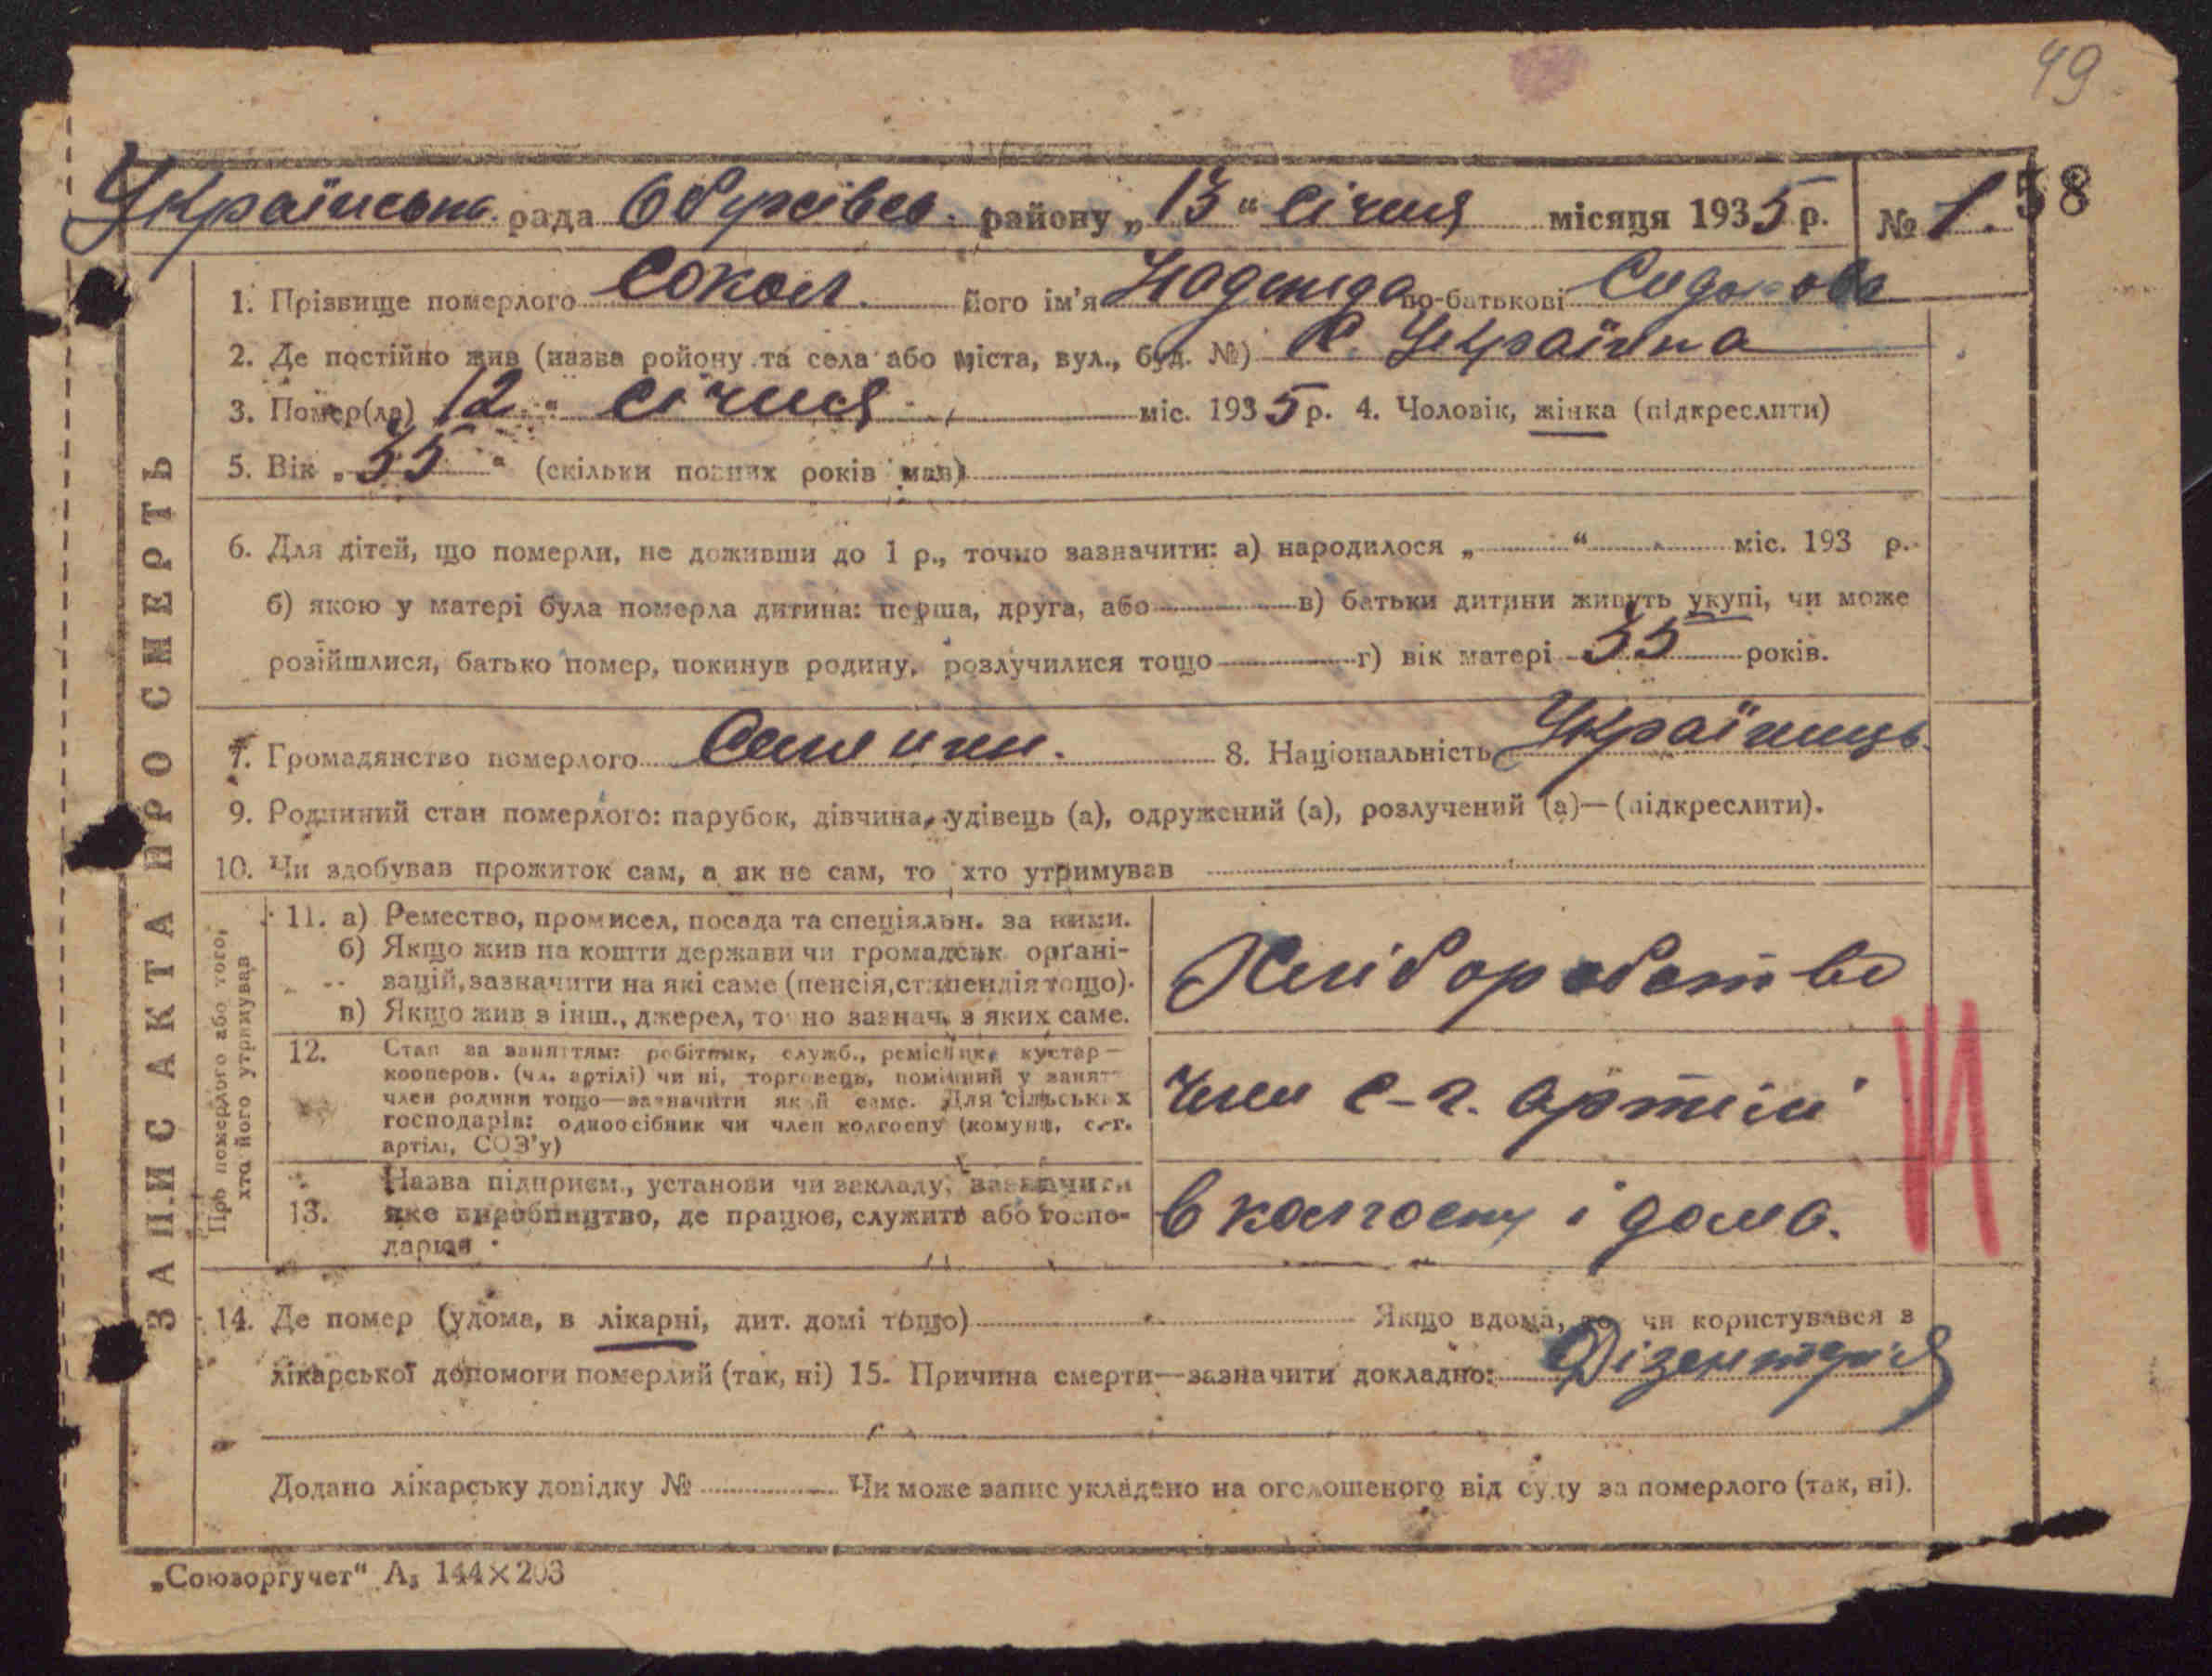 49
Українська рада Обухівсь. району „13“ Січня місяця 1935 р. № 1. 58
1. Прізвище померлого Сокол. його ім'я Надежда по-батькові
2. Де постійно жив (назва ройону та села або міста, вул., буд. №) С. Українка
3. Помер(ла) 12 “ січня міс. 1935 р. 4. Чоловік, жінка (підкреслити)
5. Вік „55“ (скільки повних років мав)
6. Для дітей, що померли, не доживши до 1 р., точно зазначити: а) народилося „ “ міс. 193 р.
б) якою у матері була померла дитина: перша, друга, або в) батьки дитини живуть укупі, чи може
розійшлися, батько помер, покинув родину, розлучилися тощо г) вік матері 55 років.
7. Громадянство померлого 8. Національність Українець
9. Родинний стан померлого: парубок, дівчина, удівець (а), одружений (а), розлучений (а)—(підкреслити).
10. Чи здобував прожиток сам, а як не сам, то хто утримував
ЗАПИС АКТА ПРО СМЕРТЬ
Про померлого або того,
хто його утримував
11. а) Ремество, промисел, посада та спеціяльн. за ними.
б) Якщо жив на кошти держави чи громадськ. орґані-
зацій, зазначити на які саме (пенсія, стипендія тощо).
в) Якщо жив з інш., джерел, точно зазнач. з яких саме.
Хліборобство
12. Стан за заняттям: робітник, служб., ремісник, кустар—
кооперов. (чл. артілі) чи ні, торговець, помічний у занят.
член родини тощо—зазначити який саме. Для сільських
господарів: одноосібник чи член колгоспу (комуни, с.-г.
артілі, СОЗ'у)
Член с-г. артілі
13. Назва підприєм., установи чи закладу, зазначити
яке виробництво, де працює, служить або госпо-
дарює
в колгоспу і дома.
14. Де помер (удома, в лікарні, дит. домі тощо) Якщо вдома, то чи користувався з
лікарської допомоги померлий (так, ні) 15. Причина смерти—зазначити докладно: Дізентерія
Додано лікарську довідку № Чи може запис укладено на оголошеного від суду за померлого (так, ні).
„Союзоргучет“ А₅ 144×203